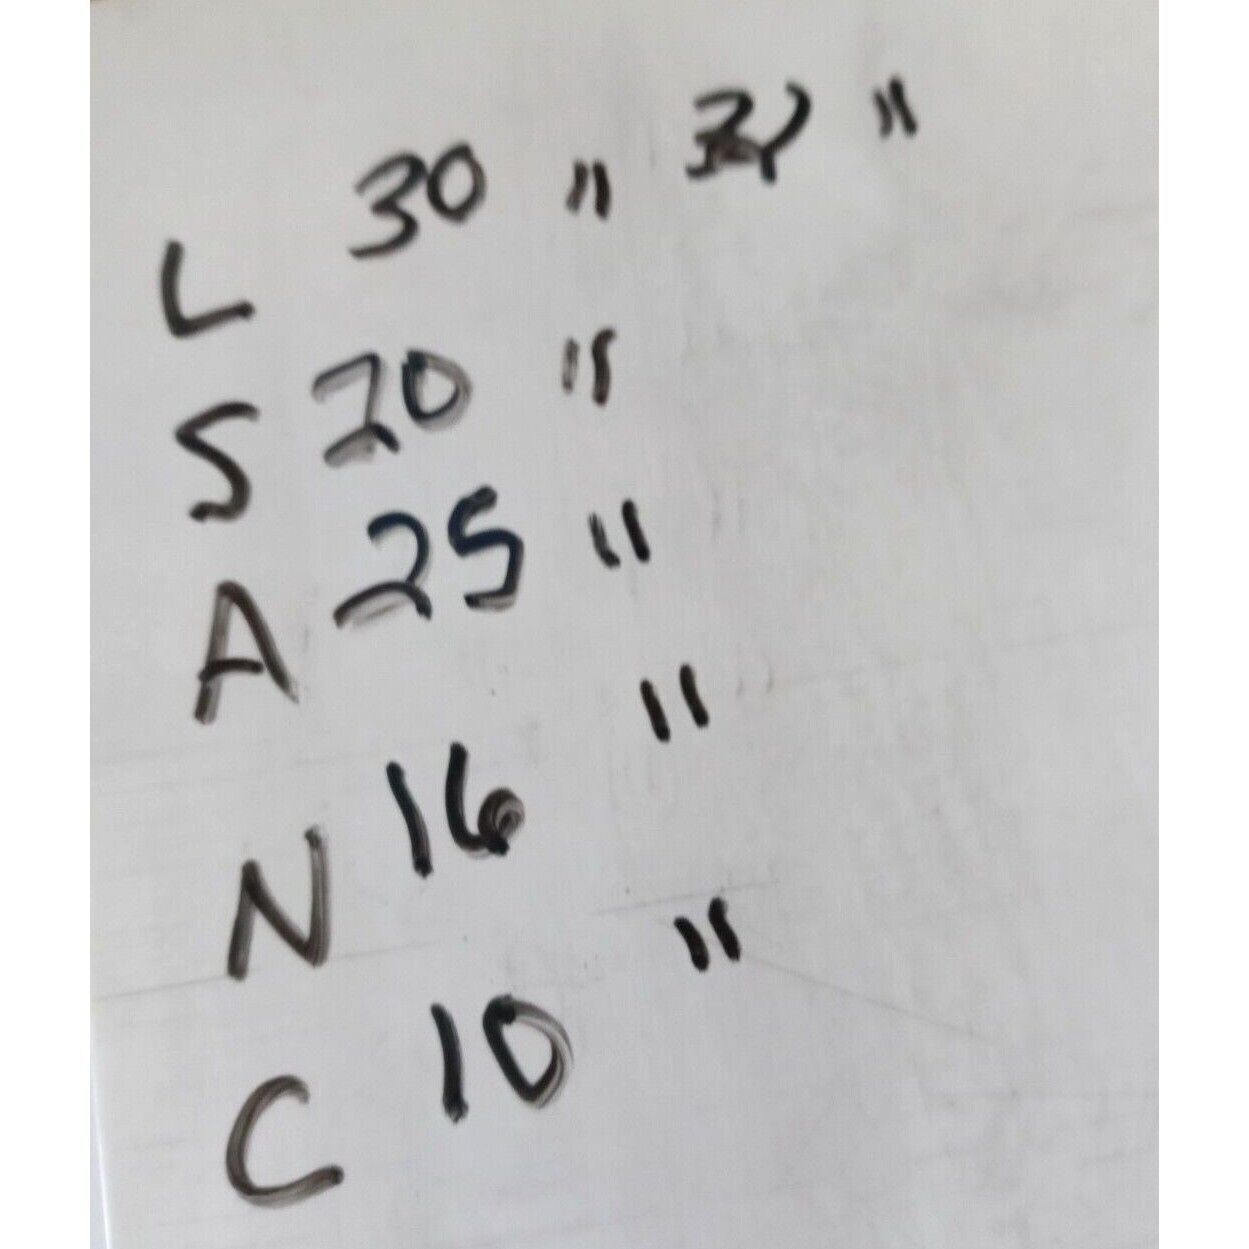 L 30 "
S 20 "
A 25 "
N 16 "
C 10 "